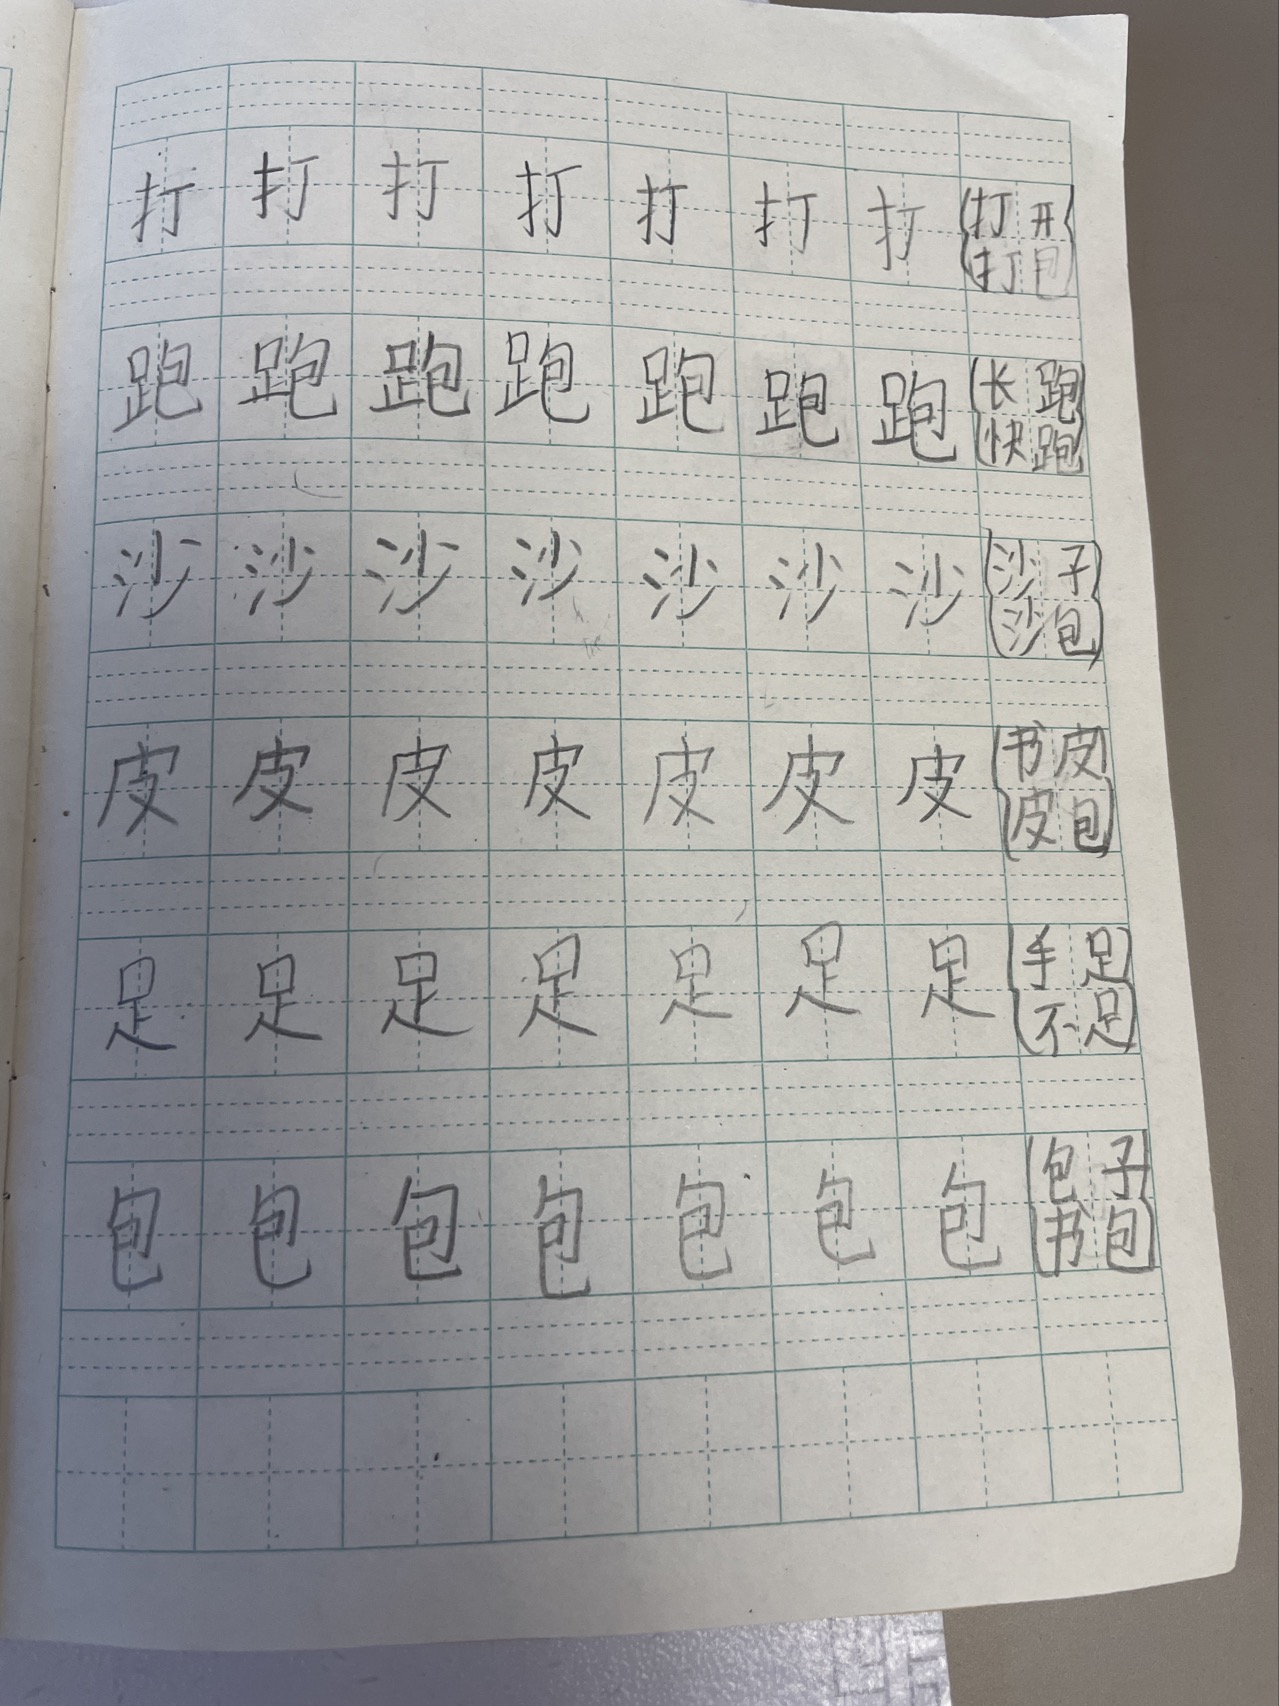 打 打 打 打 打 打 打 (打开
打包)
跑 跑 跑 跑 跑 跑 跑 (长跑
快跑)
沙 沙 沙 沙 沙 沙 沙 (沙子
沙包)
皮 皮 皮 皮 皮 皮 皮 (书皮
皮包)
足 足 足 足 足 足 足 (手足
不足)
包 包 包 包 包 包 包 (包子
书包)